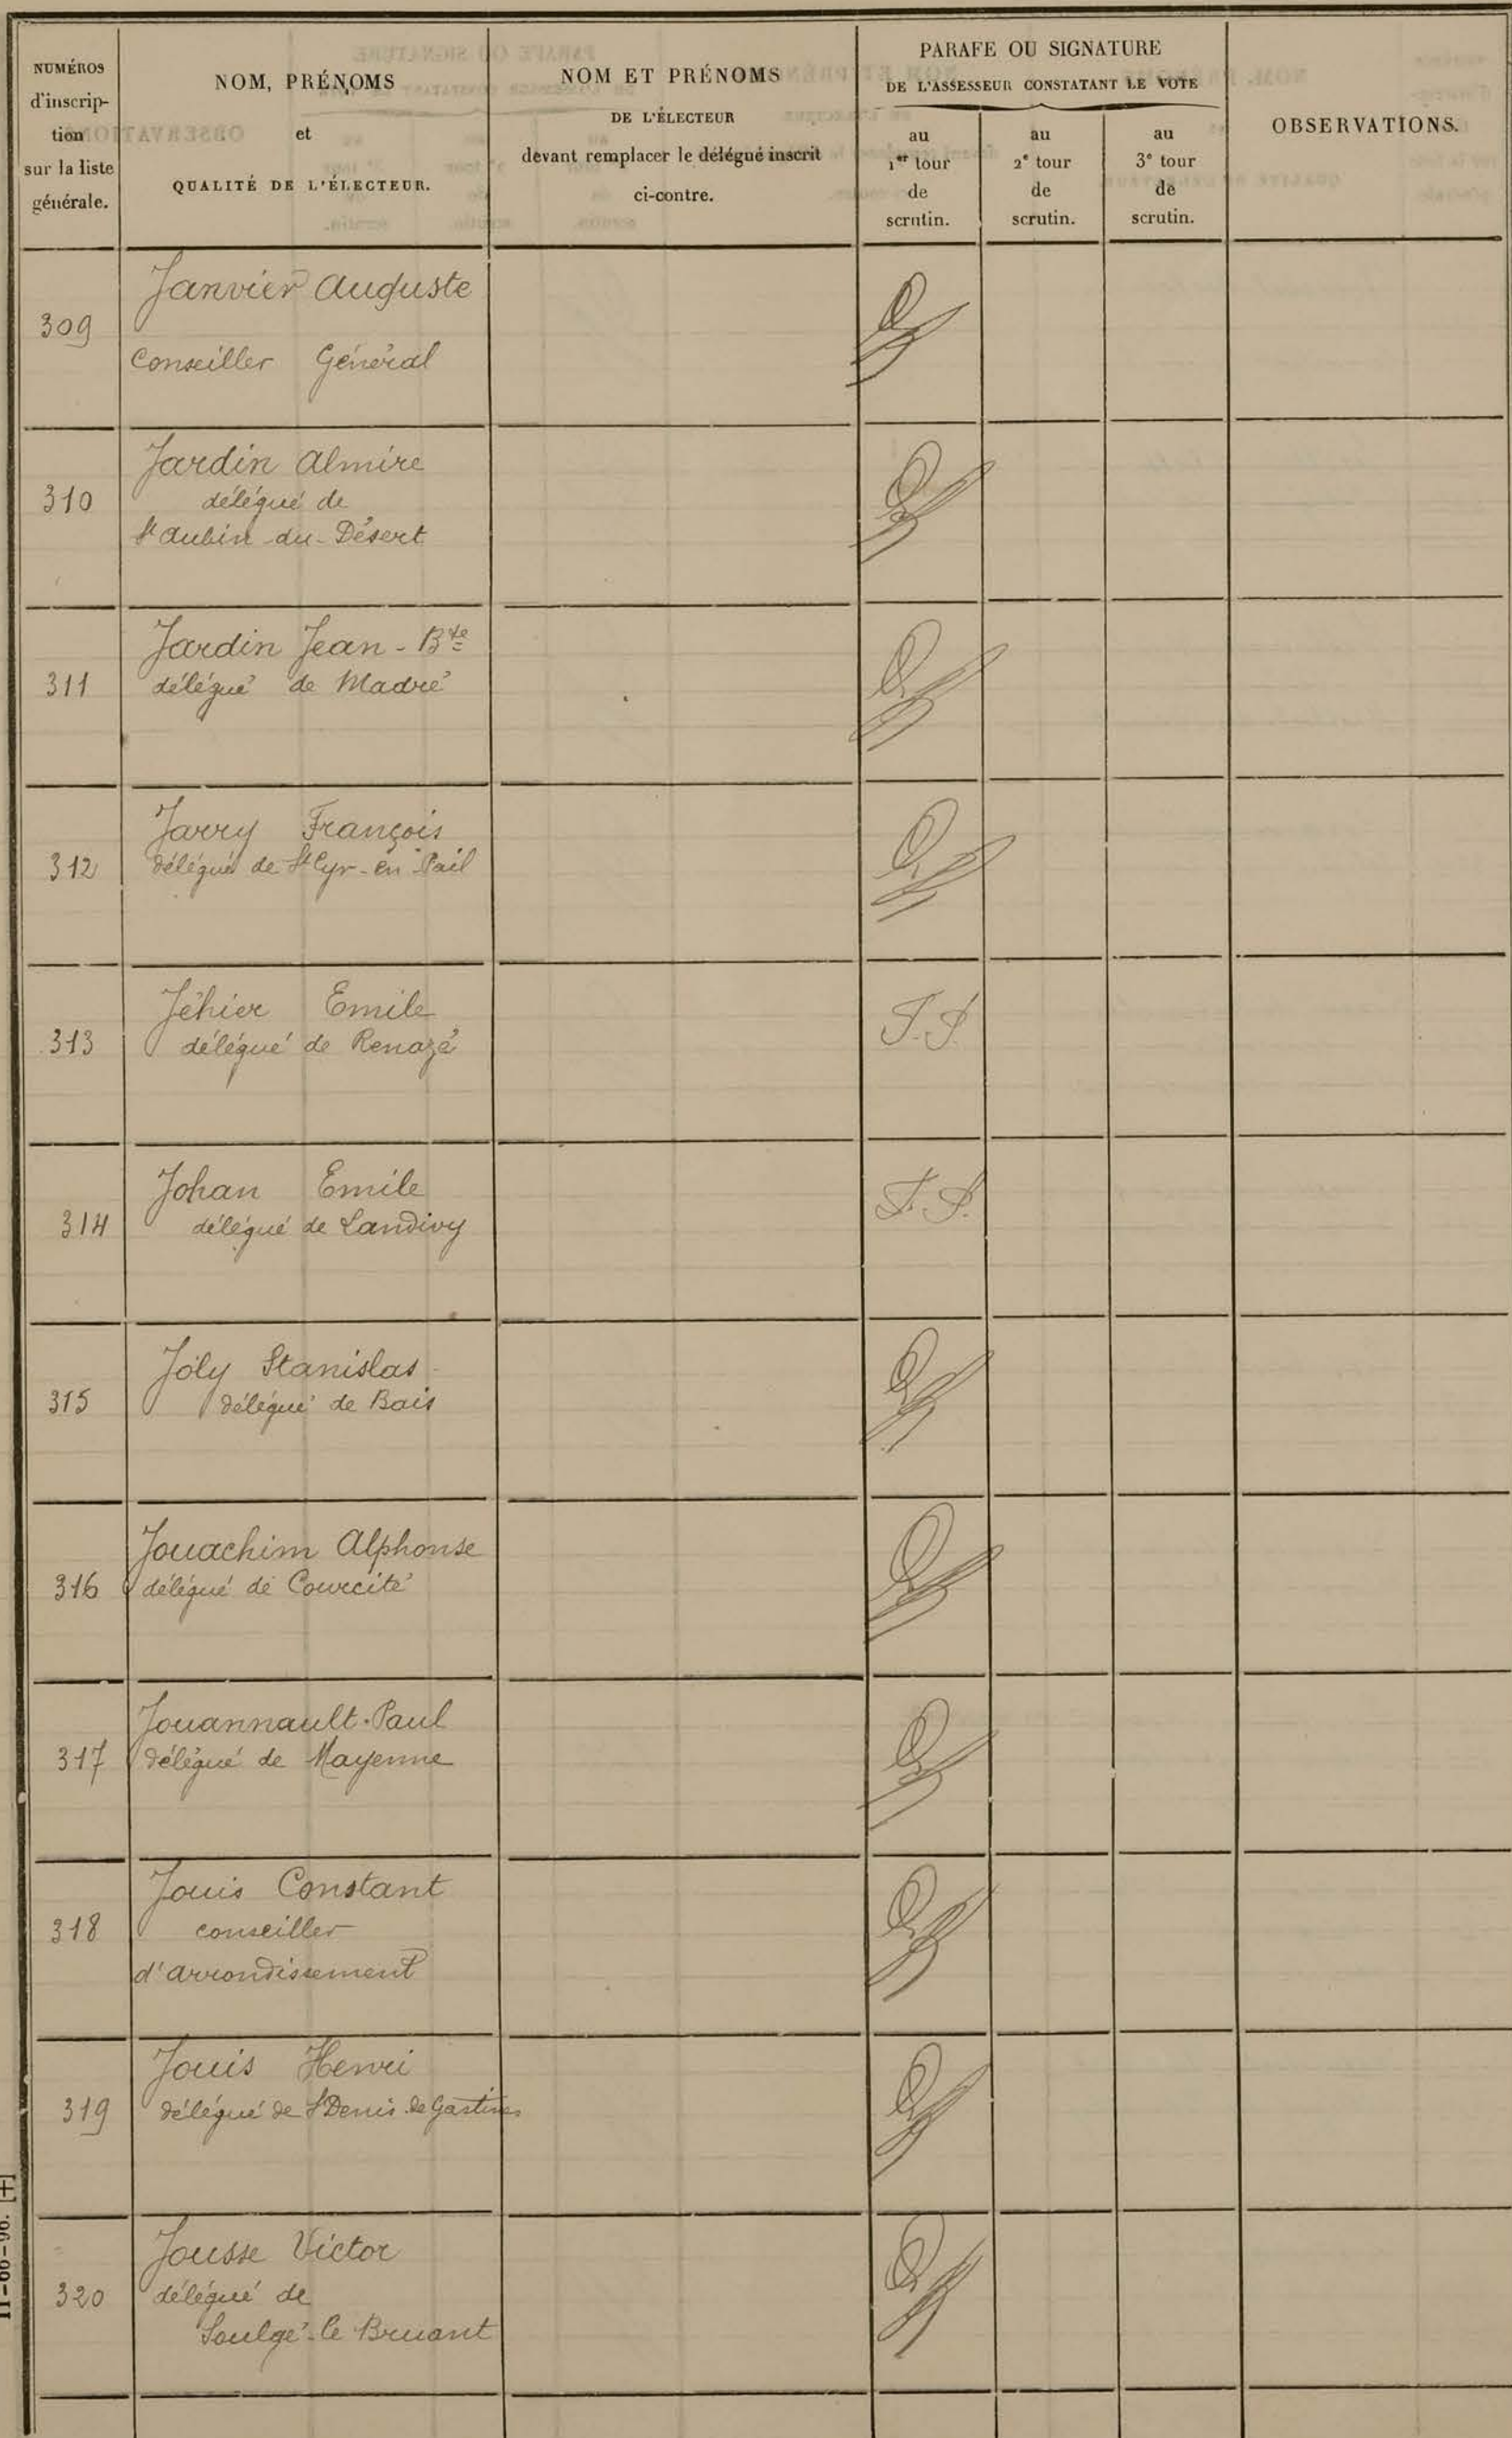 NUMÉROS
d'inscrip-
tion
sur la liste
générale.
NOM, PRÉNOMS
et
QUALITÉ DE L'ÉLECTEUR.
NOM ET PRÉNOMS
DE L'ÉLECTEUR
devant remplacer le délégué inscrit
ci-contre.
PARAFE OU SIGNATURE
DE L'ASSESSEUR CONSTATANT LE VOTE
au
1er tour
de
scrutin.
au
2e tour
de
scrutin.
au
3e tour
de
scrutin.
OBSERVATIONS.
309
Janvier Auguste
Conseiller Général
310
Jardin Almire
délégué de
St Aubin-du-Désert
311
Jardin Jean-Bte
délégué de Madré
312
Jarry François
délégué de St Cyr-en-Pail
313
Jéhier Emile
délégué de Renazé
314
Johan Emile
délégué de Landivy
315
Joly Stanislas
délégué de Bais
316
Jouachim Alphonse
délégué de Courcité
317
Jouannault Paul
délégué de Mayenne
318
Jouis Constant
conseiller
d'arrondissement
319
Jouis Henri
délégué de St Denis de Gastines
320
Jousse Victor
délégué de
Soulgé-le Bruant